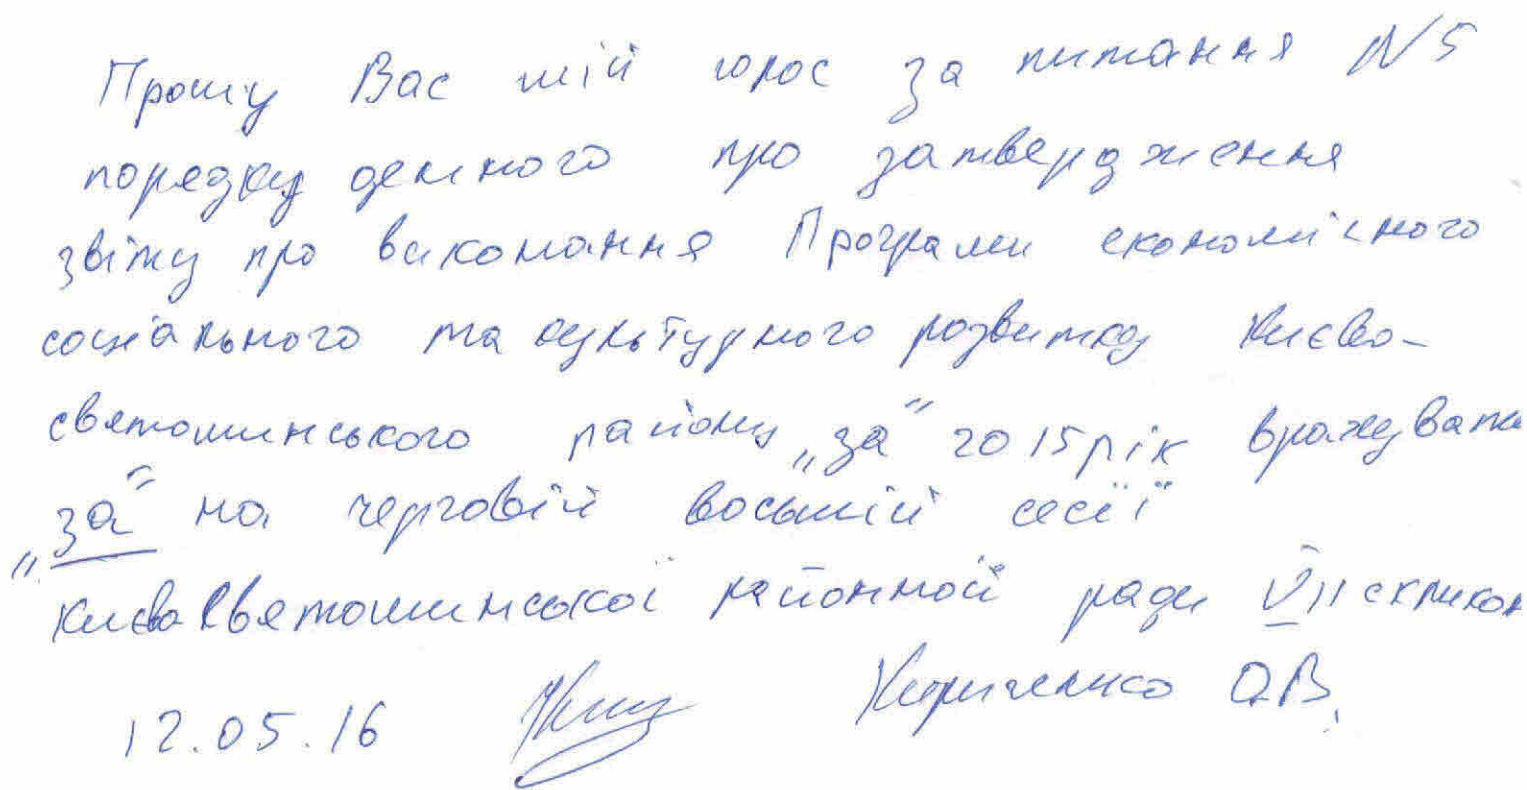 Прошу Вас мій голос за питання N5
порядку денного про затвердження
звіту про виконання Програми економічного
соціального та культурного розвитку Києво-
святошинського району „за" 2015 рік врахувати
„за" на черговій восьмій сесії
Києво Святошинської районної ради VII скликан
12.05.16 Кириченко О.В.